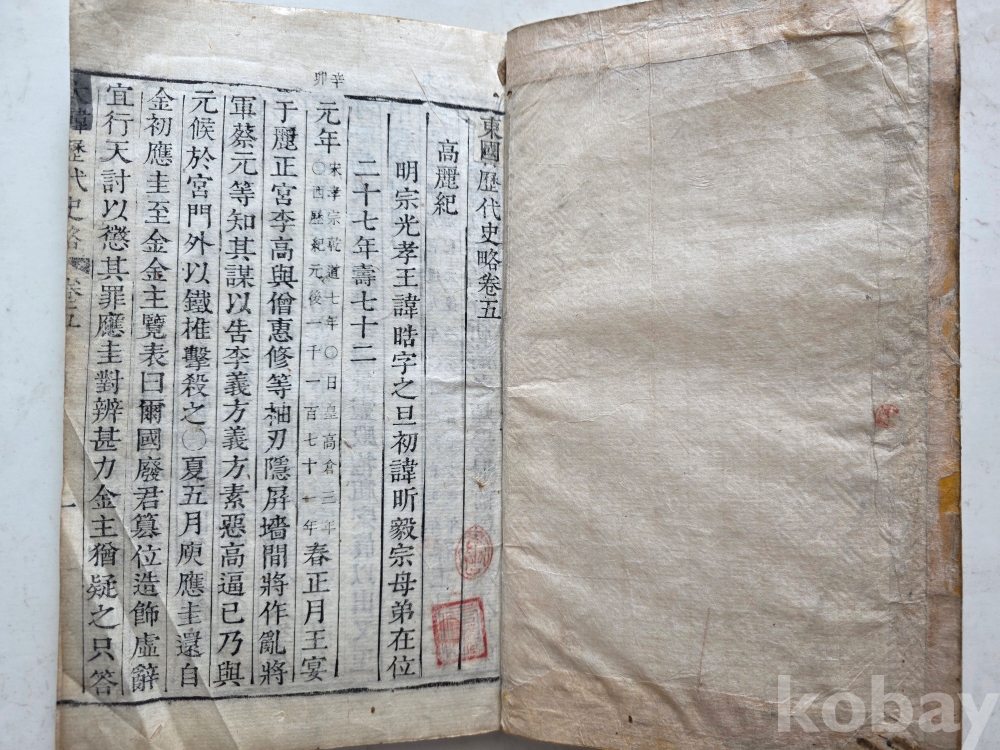 東國歷代史略卷五
高麗紀
明宗光孝王諱晧字之旦初諱昕毅宗母弟在位
二十七年壽七十二
辛卯
元年
宋孝宗乾道七年〇日皇高倉三年
〇西歷紀元後一千一百七十一年
春正月王宴
于麗正宮李高與僧惠修等袖刃隱屛墻間將作亂將
軍蔡元等知其謀以告李義方義方素惡高逼已乃與
元候於宮門外以鐵椎擊殺之〇夏五月庾應圭還自
金初應圭至金金主覽表曰爾國廢君簒位造飾虛辭
宜行天討以懲其罪應圭對辨甚力金主猶疑之只答
大韓歷代史略 卷五
一
kobay